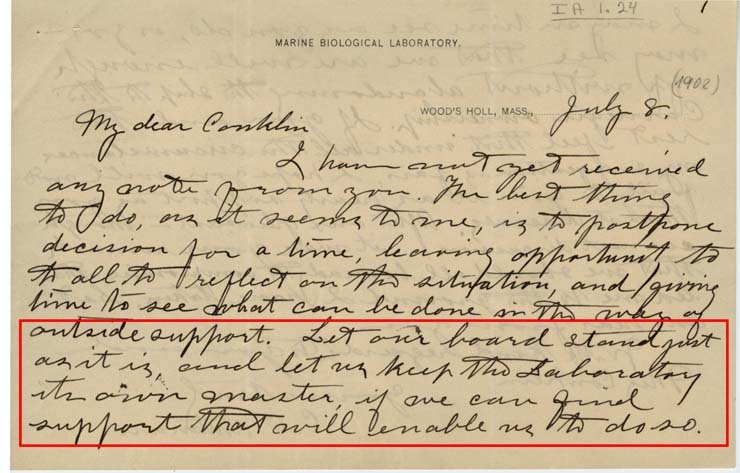 IA 1.24
1
MARINE BIOLOGICAL LABORATORY.
(1902)
WOOD'S HOLL, MASS., July 8.
My dear Conklin
I have not yet received
any note from you. The best thing
to do, as it seems to me, is to postpone
decision for a time, leaving opportunit to
to all to reflect on the situation, and giving
time to see what can be done in the way of
outside support. Let our board stand just
as it is, and let us keep the Laboratory
its own master, if we can find
support that will enable us to do so.